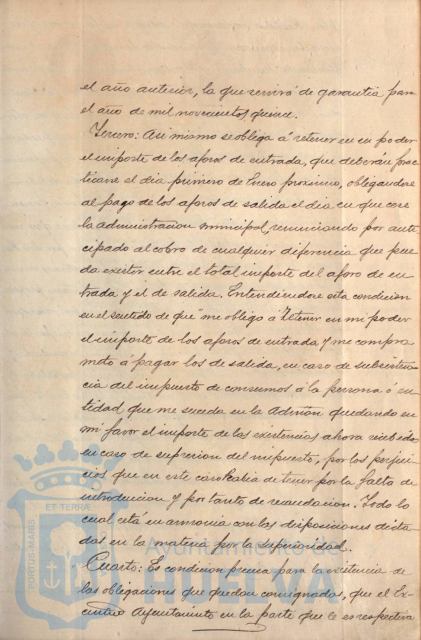 el año anterior, la que servirá de garantia para
el año de mil novecientos quince.
Tercero: Asi mismo se obliga á retener en su poder
el importe de los aforos de entrada, que deberán prac
ticarse el dia primero de Enero proximo, obligandose
al pago de los aforos de salida el dia en que cese
la administracion municipal, renunciando por anti
cipado al cobro de cualquier diferencia que pue
da existir entre el total importe del aforo de en
trada y el de salida. Entendiendose esta condicion
en el sentido de que "me obligo á retener en mi poder
el importe de los aforos de entrada y me compro
meto á pagar los de salida, en caso de subsisten
cia del impuesto de consumos á la persona ó en
tidad que me suceda en la Admon quedando en
mi favor el importe de las existencias ahora recibido
en caso de supresion del impuesto, por los perjui
cios que en este caso habia de tener por la falta de
introduccion y por tanto de recaudacion. Todo lo
cual está en armonia con las disposiciones dicta
das en la materia por la Superioridad.
Cuarto: Es condicion precisa para la existencia de
las obligaciones que quedan consignadas, que el Ex-
cmo Ayuntamiento en la parte que le es respectiva
PORTUS MARIS
ET TERRÆ
Ayuntamiento de
HUELVA